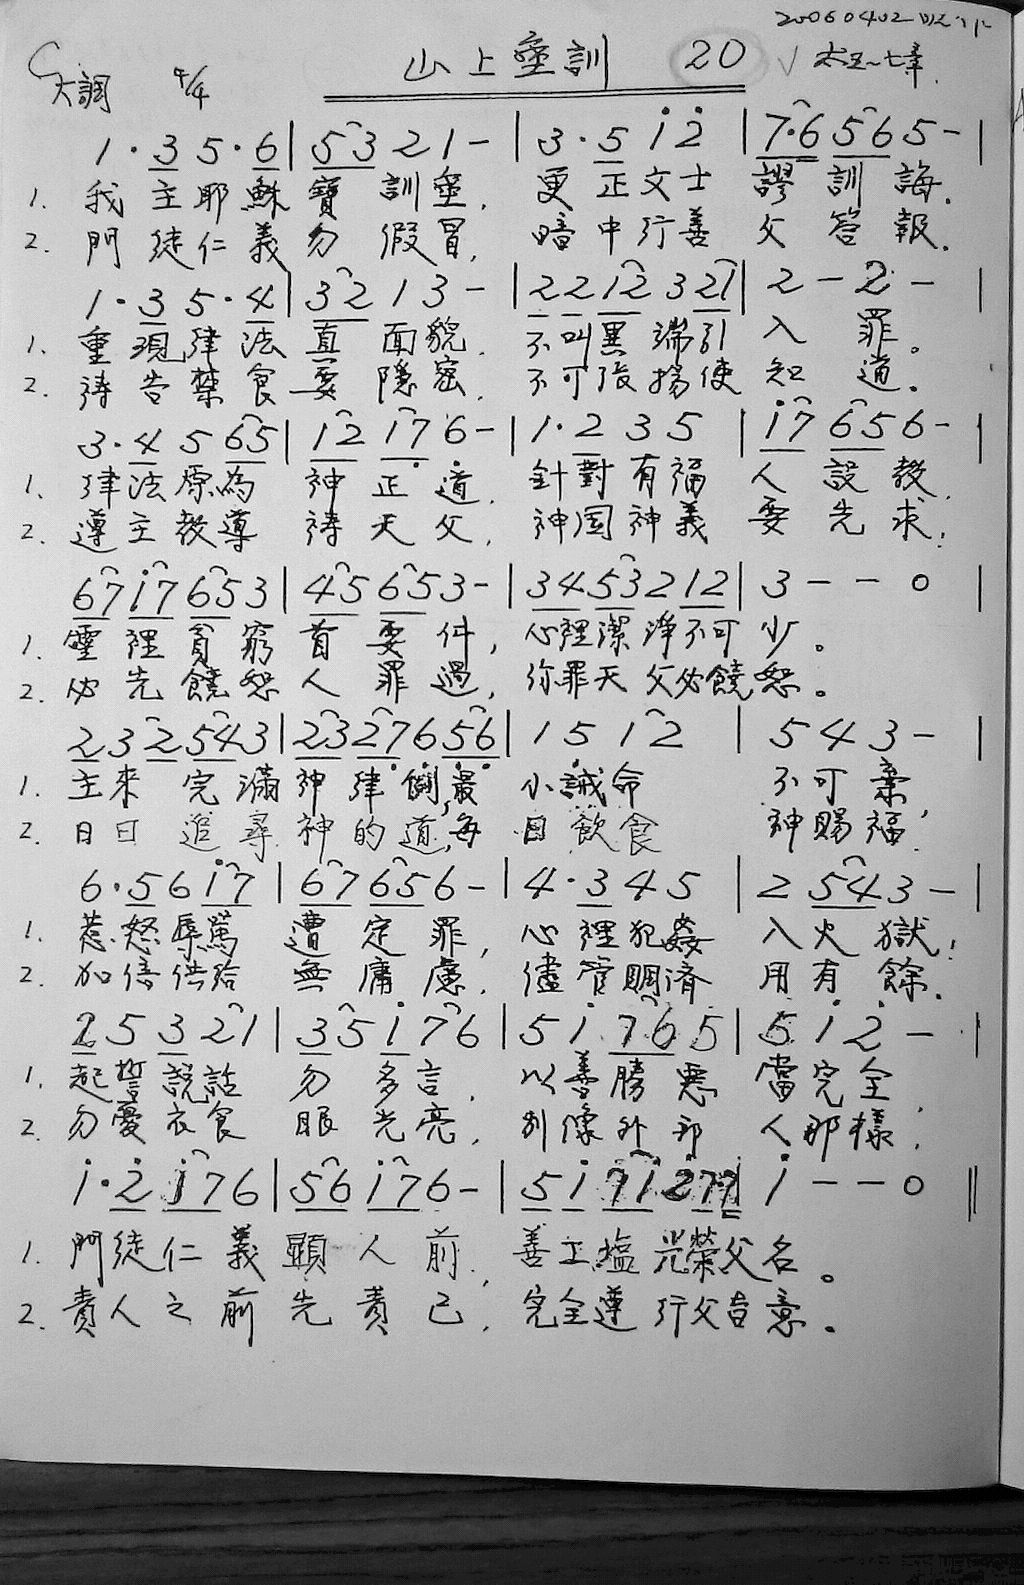 20060402
C大調 4/4 山上垒訓 20 √ 太五~七章.
1 · 3 5 · 6 | 5 3 2 1 - | 3 · 5 i 2̇ | 7 · 6 5 6 5 - |
1. 我主耶穌寶訓垒, 更正文士謬訓誨.
2. 門徒仁義勿假冒, 暗中行善父答報.
1 · 3 5 · 4 | 3 2 1 3 - | 2 2 1 2 3 2 1 | 2 - 2 - |
1. 重現律法真面貌, 不叫異端引入罪。
2. 禱告禁食要隱密, 不可張揚使知道。
3 · 4 5 6 5 | 1 2 1 7 6 - | 1 · 2 3 5 | i 7 6 5 6 - |
1. 律法原為神正道, 針對有福人設教,
2. 遵主教導禱天父, 神国神義要先求;
6 7 i 7 6 5 3 | 4 5 6 5 3 - | 3 4 5 3 2 1 2 | 3 - - 0
1. 靈裡貧窮首要件, 心裡潔淨不可少。
2. 必先饒恕人罪過, 你罪天父必饒恕。
2 3 2 5 4 3 | 2 3 2 7 6 5 6 | 1 5 1 2 | 5 4 3 - |
1. 主來完滿神律例,最小誡命不可棄,
2. 日日追尋神的道,每日飲食神賜福.
6 · 5 6 i 7 | 6 7 6 5 6 - | 4 · 3 4 5 | 2 5 4 3 - |
1. 惹怒辱罵遭定罪, 心裡犯姦入火獄;
2. 加倍供給無庸慮, 儘管賙濟用有餘.
2 5 3 2 1 | 3 5 i 7 6 | 5 i 7 6 5 | 5 i 2̇ - |
1. 起誓說話勿多言, 以善勝惡當完全,
2. 勿憂衣食眼光亮, 別像外邦人那樣,
i · 2̇ i 7 6 | 5 6 i 7 6 - | 5 i 7 i 2̇ 7 7 | i - - 0 ||
1. 門徒仁義顯人前, 善工塩光榮父名。
2. 責人之前先責己, 完全遵行父旨意。